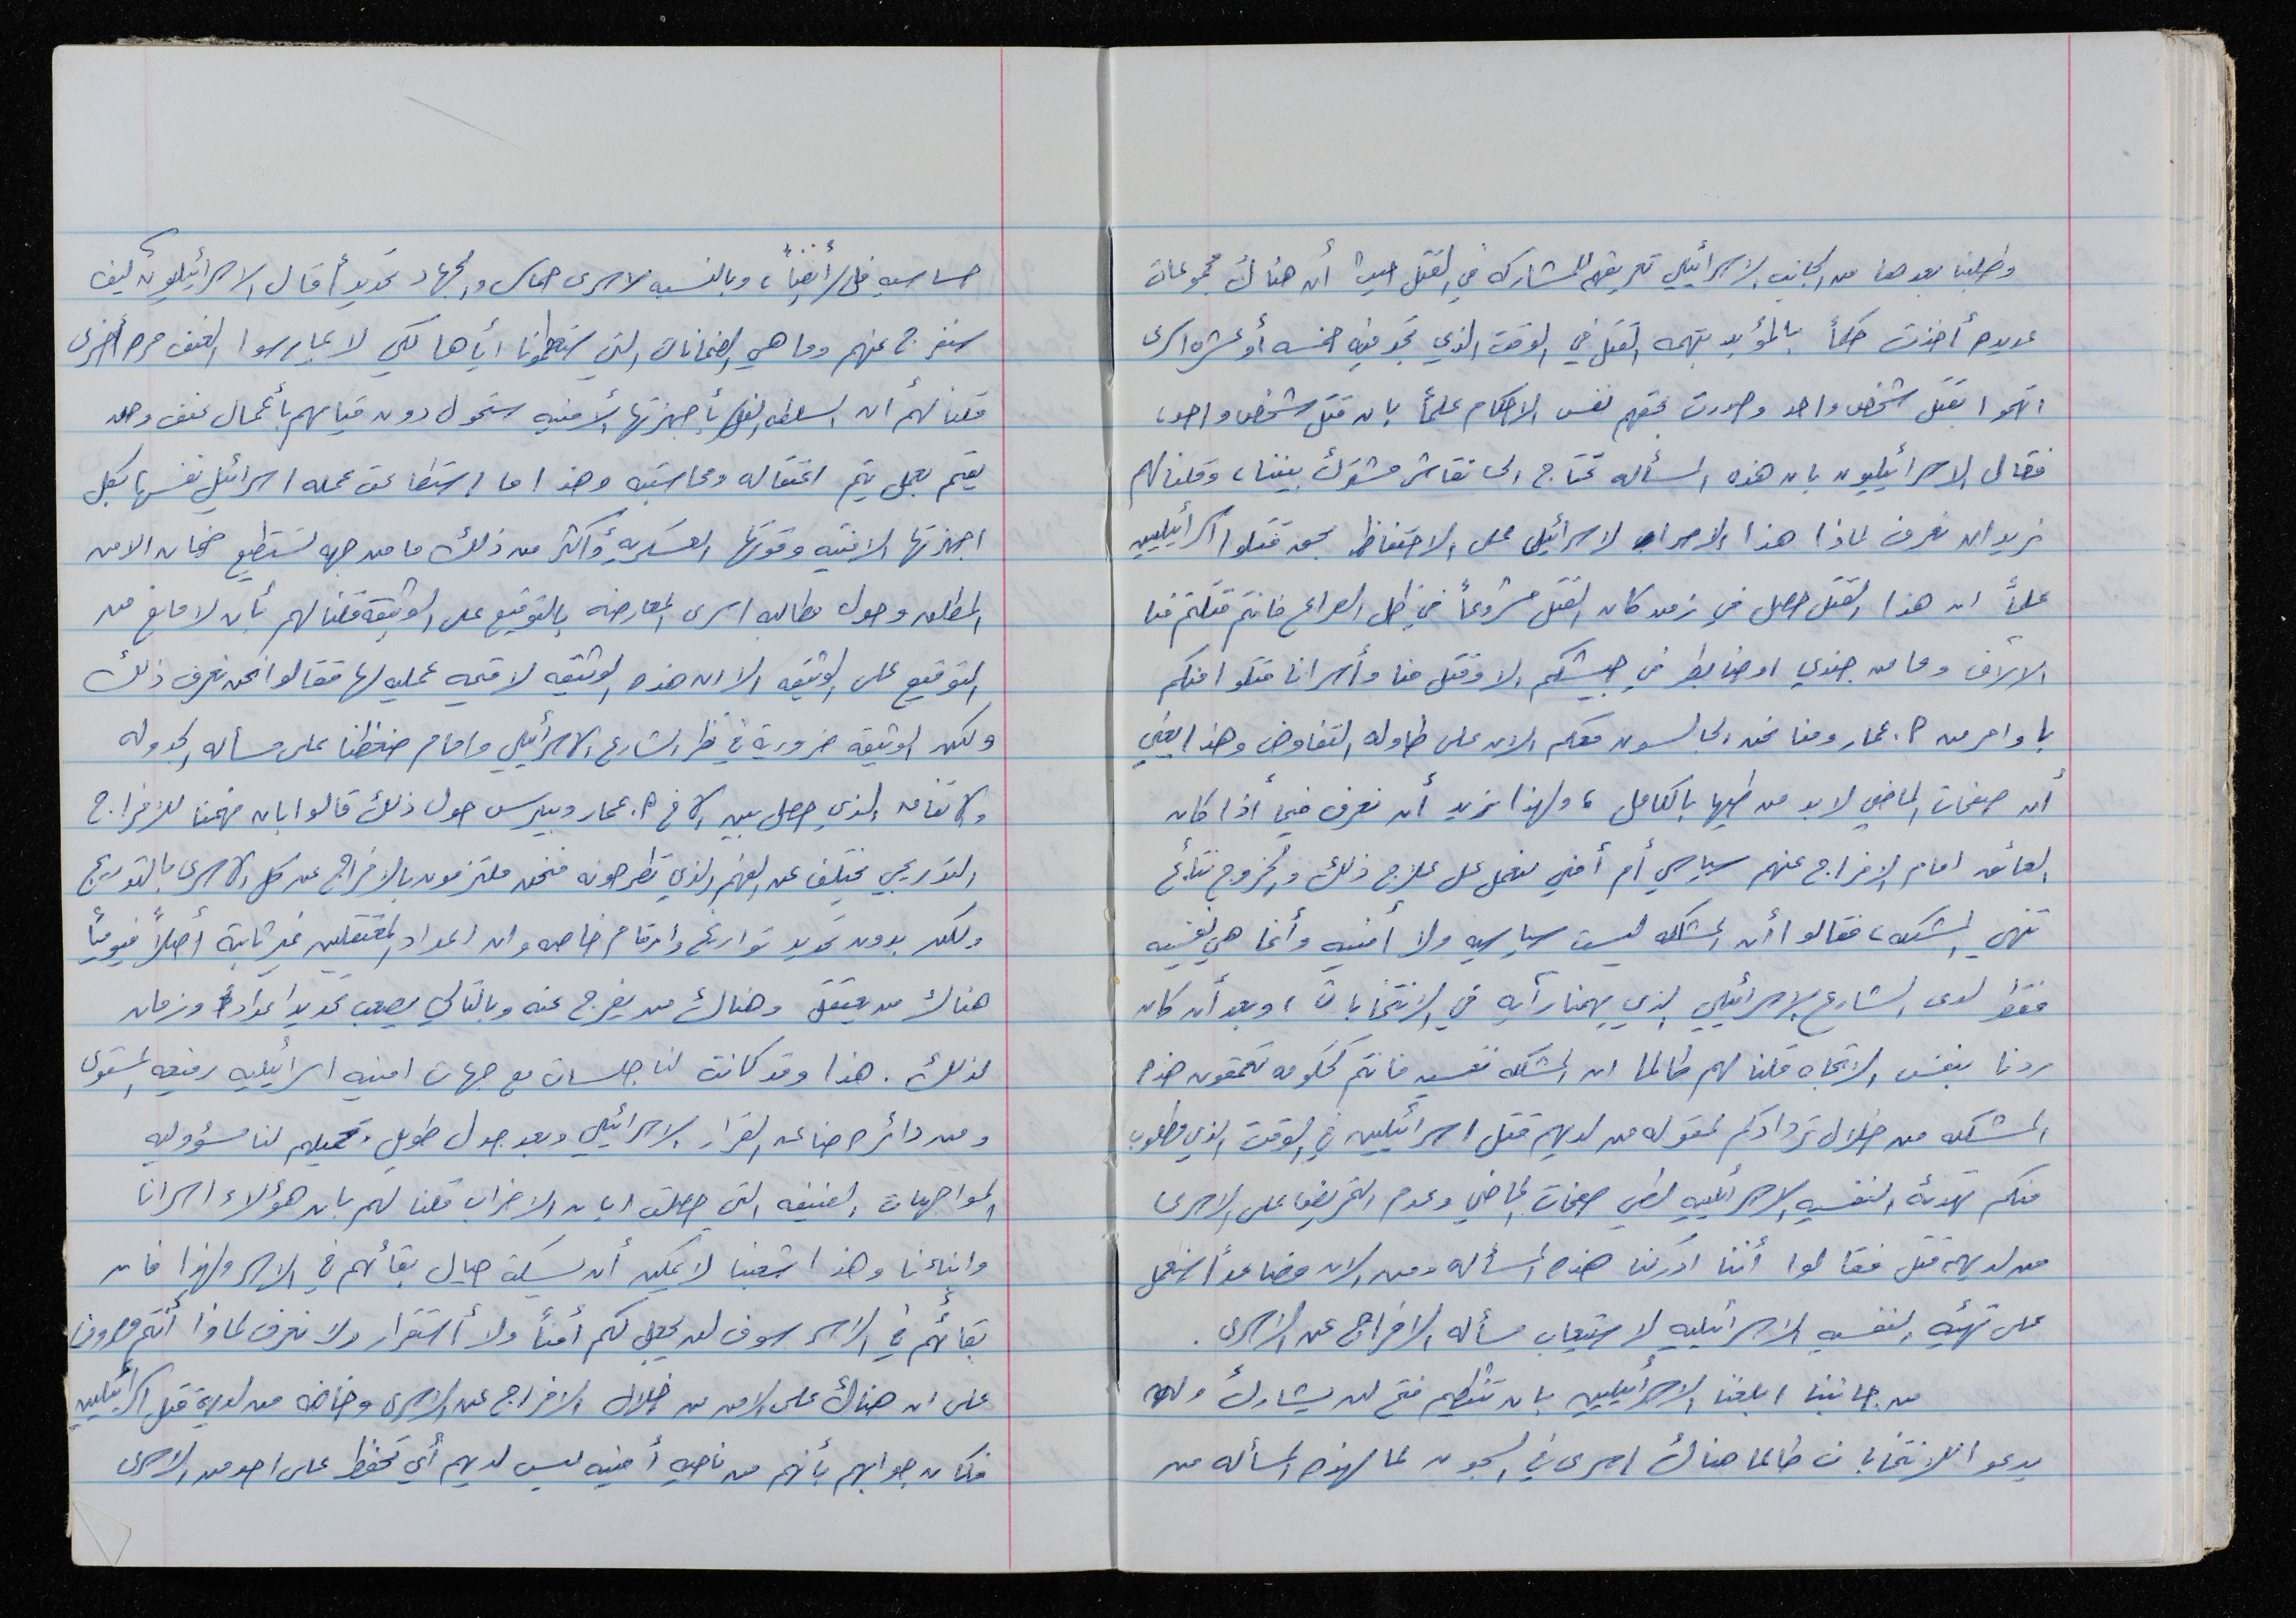 وطلبنا بعدها من الجانب الاسرائيلي تعريفهم للمشاركه في القتل حيث أن هناك مجموعات
عديده أخذت حكماً بالمؤبد بتهمه القتل في الوقت الذي تجد فيه خمسه أو عشره اسرى
اتهموا بقتل شخص واحد وصدرت بحقهم نفس الاحكام علماً بان قتل شخص واحد،
فقال الاسرائيليون بان هذه المسأله تحتاج الى نقاش مشترك بيننا، وقلنا لهم
نريد ان نعرف لماذا هذا الاصرار الاسرائيلي على الاحتفاظ بمن قتلوا اسرائيليين
علماً ان هذا القتل حصل في زمن كان القتل مشروعاً في ظل الصراع فانتم قتلتم منا
الآلاف وما من جندي او ضابط في جيشكم الا وقتل منا وأسرانا قتلوا منكم
باوامر من ا. عمار ومنا نحن الجالسون معكم الان على طاوله التفاوض وهذا يعني
أن صفحات الماضي لا بد من طيها بالكامل، ولهذا نريد أن نعرف فيما أذا كان
العائق امام الافراج عنهم سياسي أم أمني لنعمل على علاج ذلك والخروج بنتائج
تنهي المشكله، فقالوا أن المشكله ليست سياسيه ولا أمنيه وأنما هي نفسيه
فقط لدى الشارع الاسرائيلي الذي يهمنا رأيه في الانتخابات، وبعد أن كان
ردنا بنفس الاتجاه قلنا لهم طالما ان المشكله نفسيه فانتم كحكومه تعمقون هذه
المشكله من خلال تردادكم لمقوله من لديهم قتل اسرائيليين في الوقت الذي مطلوب
منكم تهدئة النفسيه الاسرائيليه لطي صفحات الماضي وعدم التحريض على الاسرى
من لديهم قتل فقالوا أننا ادركنا هذه المسأله ومن الان فصاعداً سنعمل
على تهيئه النفسيه الاسرائيليه لاستيعاب مسأله الافراج عن الاسرى.
من جانبنا ابلغنا الاسرائيليين بان تنظيم فتح لن يشارك ولن
يدعوا للانتخابات طالما هناك اسرى في السجون لما لهذه المسأله من
حساسيه فلسطينياً، وبالنسبه لاسرى حماس والجهاد تحديداً قال الاسرائيليون كيف
سنفرج عنهم وما هي الضمانات التي ستعطونا أياها لكي لا يمارسوا العنف مره أخرى
قلنا لهم أن السلطه بأجهزتها الأمنيه ستحول دون قيامهم بأعمال عنف ومن
يقم بعمل يتم اعتقاله ومحاسبته وهذا ما استطاعت عمله اسرائيل نفسها بكل
اجهزتها الامنيه وقوتها العسكريه وأكثر من ذلك ما من جهه تستطيع ضمان الامن
المطلق وحول مطالبه اسرى المعارضه بالتوقيع على الوثيقة قلنا لهم بأن لا مانع من
التوقيع على الوثيقه الا ان هذه الوثيقه لا قيمه عمليه لها فقالوا نحن نعرف ذلك
ولكن الوثيقه ضرورية في نظر الشارع الاسرائيلي وامام ضغطنا على مسأله الجدوله
والاتفاق الذي حصل بين الاخ ا. عمار وبيرس حول ذلك قالوا بان فهمنا للافراج
التدريجي يختلف عن الفهم الذي تطرحونه فنحن ملتزمون بالافراج عن كل الاسرى بالتدريج
ولكن بدون تحديد تواريخ وارقام خاصه وان اعداد المعتقلين غير ثابتة أصلاً فيومياً
هناك من يعتقل وهناك من يفرج عنه وبالتالي يصعب تحديد اعداد وزمان
لذلك. هذا وقد كانت لنا جلسات مع جهات امنيه اسرائيليه رفيعه المستوى
ومن دائره صناعه القرار الاسرائيلي وبعد جدل طويل وتحميلهم لنا مسؤوليه
المواجهات العنيفه التي حصلت ابان الاضراب قلنا لهم بان هؤلاء اسرانا
وابناءنا وهذا شعبنا لا يمكن أن يسكت حيال بقائهم في الاسر ولهذا فان
بقائهم في الاسر سوف لن يجعل لكم أمناً ولا أستقرار ولا نعرف لماذا أنتم مصرون
على ان هناك على الامن من خلال الافراج عن الاسرى وخاصه من لديهم قتل اسرائيليين
فكان جوابهم بأنهم من ناحيه أمنيه ليس لديهم أي تحفظ على احد من الاسرى